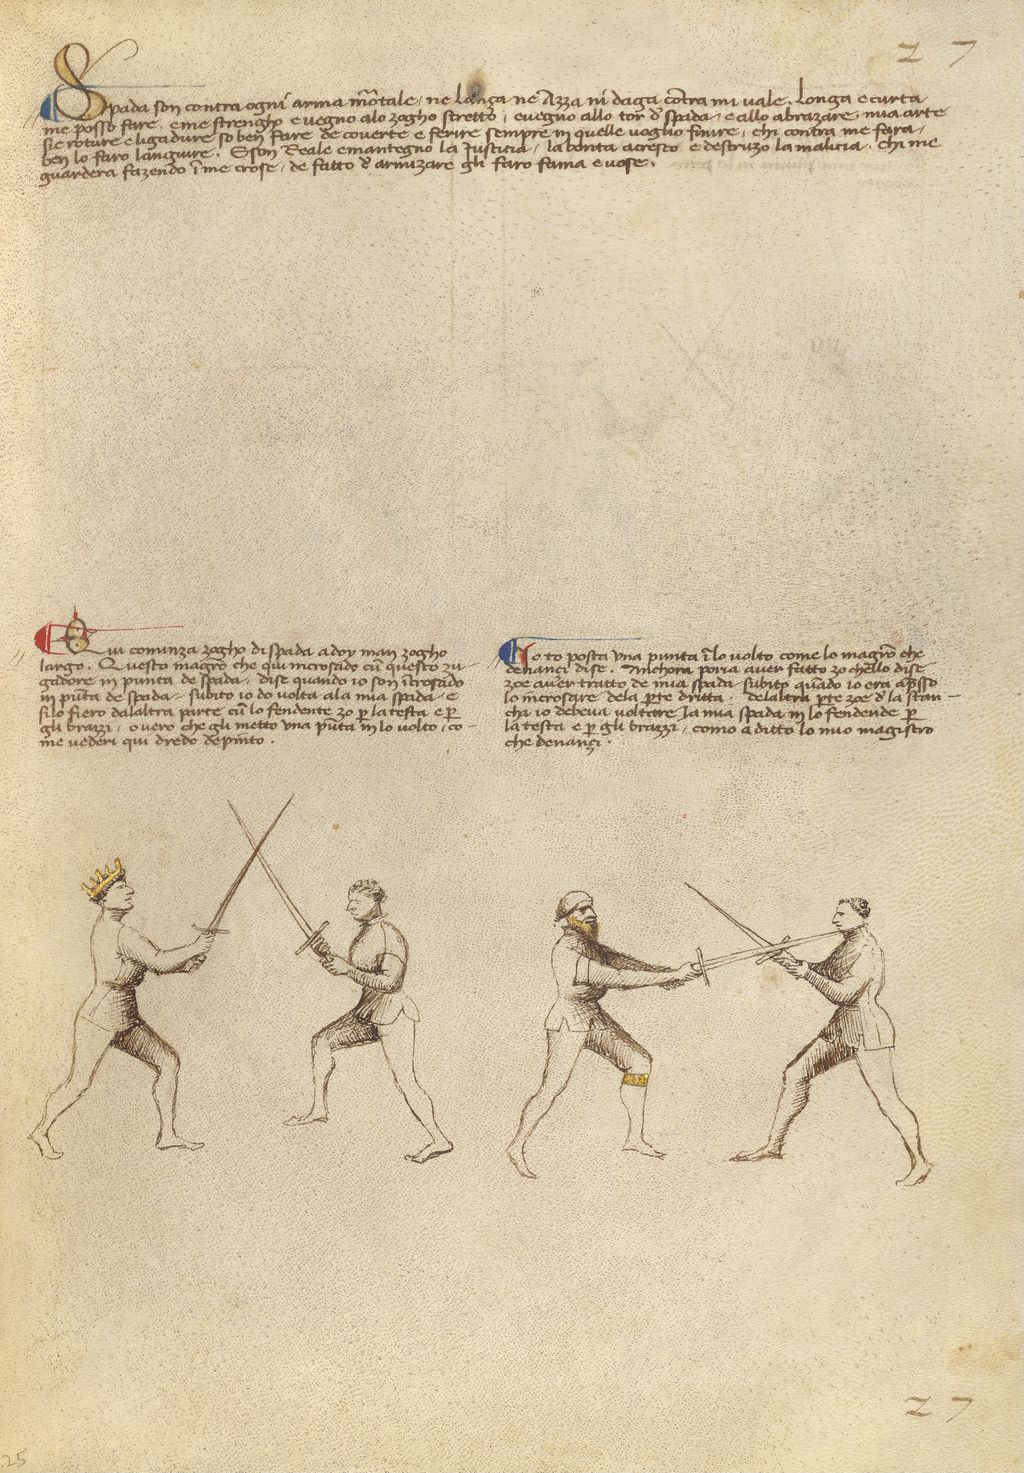 27
Spada son contra ogni arma mortale, ne lanza ne Azza ni daga contra mi uale. Longa e curta
me posso fare e me strengho e uegno alo zogho stretto, e uegno allo tor d spada, e allo abrazare, mia arte
sie roture e ligadure so ben fare de couerte e ferire sempre in quelle uoglio finire, chi contra me fara,
ben lo faro languire. E son Reale e mantegno la Justicia, la bonta acresco e destruzo la malicia. Chi me
guardera fazendo in me crose, de fatto d armizare gli faro fama e uose.
Qui cominza zogho di spada a doy man zogho
largo. Questo magro che qui incrosado cum questo zu-
gadore in punta de spada, dise quando io son incrosado
in punta de spada, subito io do uolta ala mia spada, e
silo fiero dalaltra parte cum lo fendente zo per la testa e per
gli brazzi, o uero che gli metto una punta in lo uolto, co-
me uederi qui dredo depinto.
Io to posta una punta in lo uolto come lo magro che
denanci dise. Anchora poria auer fatto zo chello dise
zoe auer tratto de mia spada subito quando io era apresso
lo incrosare dela parte dritta. delaltra parte zoe d la stan-
cha io debeua uoltare la mia spada in lo fendende per
la testa e per gli brazzi, como a ditto lo mio magistro
che denanzi.
27
25